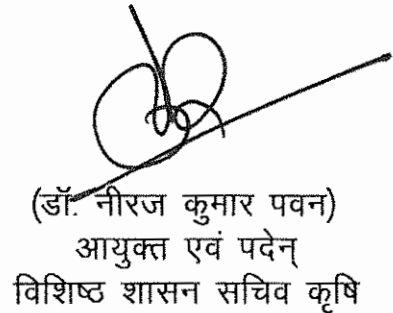 (डॉ. नीरज कुमार पवन)
आयुक्त एवं पदेन्
विशिष्ठ शासन सचिव कृषि